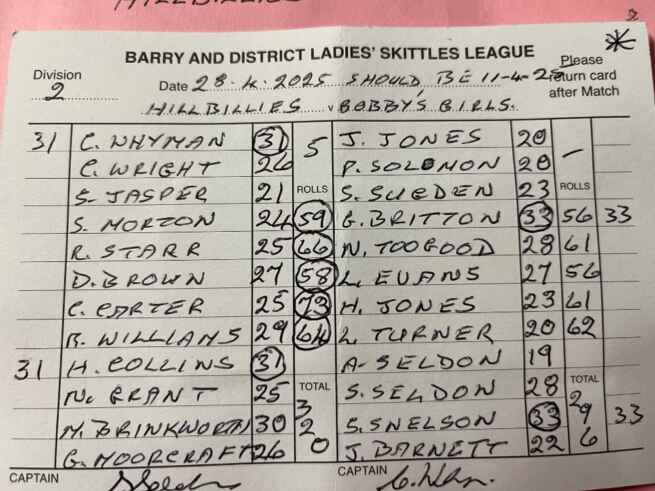 HILLBILLIES
BARRY AND DISTRICT LADIES' SKITTLES LEAGUE
Division 2
Date 28.4.2025 SHOULD BE 11-4-25
Please return card after Match
HILLBILLIES v BOBBY'S GIRLS.
31 C. WHYMAN 31 5 J. JONES 20 —
C. WRIGHT 26 P. SOLOMON 20
S. JASPER 21 ROLLS S. SUEDEN 23 ROLLS
S. MORTON 24 59 G. BRITTON 33 56 33
R. STARR 25 66 N. TOOGOOD 28 61
D. BROWN 27 58 L. EVANS 27 56
C. CARTER 25 73 H. JONES 23 61
B. WILLIAMS 29 64 L. TURNER 20 62
31 H. COLLINS 31 A. SELDON 19
N. GRANT 25 TOTAL S. SELDON 28 TOTAL
M. BRINKWORTH 30 320 S. SNELSON 33 296 33
G. MOORCRAFT 26 J. BARNETT 22
CAPTAIN CAPTAIN